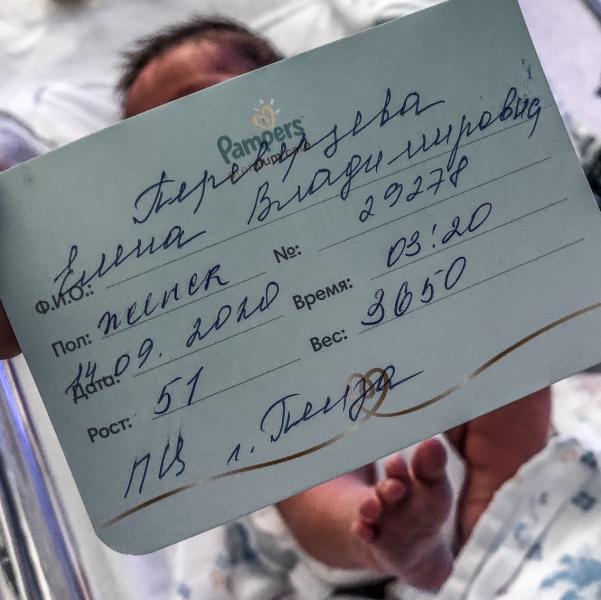 Pampers
Переверзева
Елена Владимировна
Ф.И.О.:
№: 29278
Пол: женск
Время: 03:20
Дата: 14.09.2020
Вес: 3650
Рост: 51
ПЦ г. Пенза